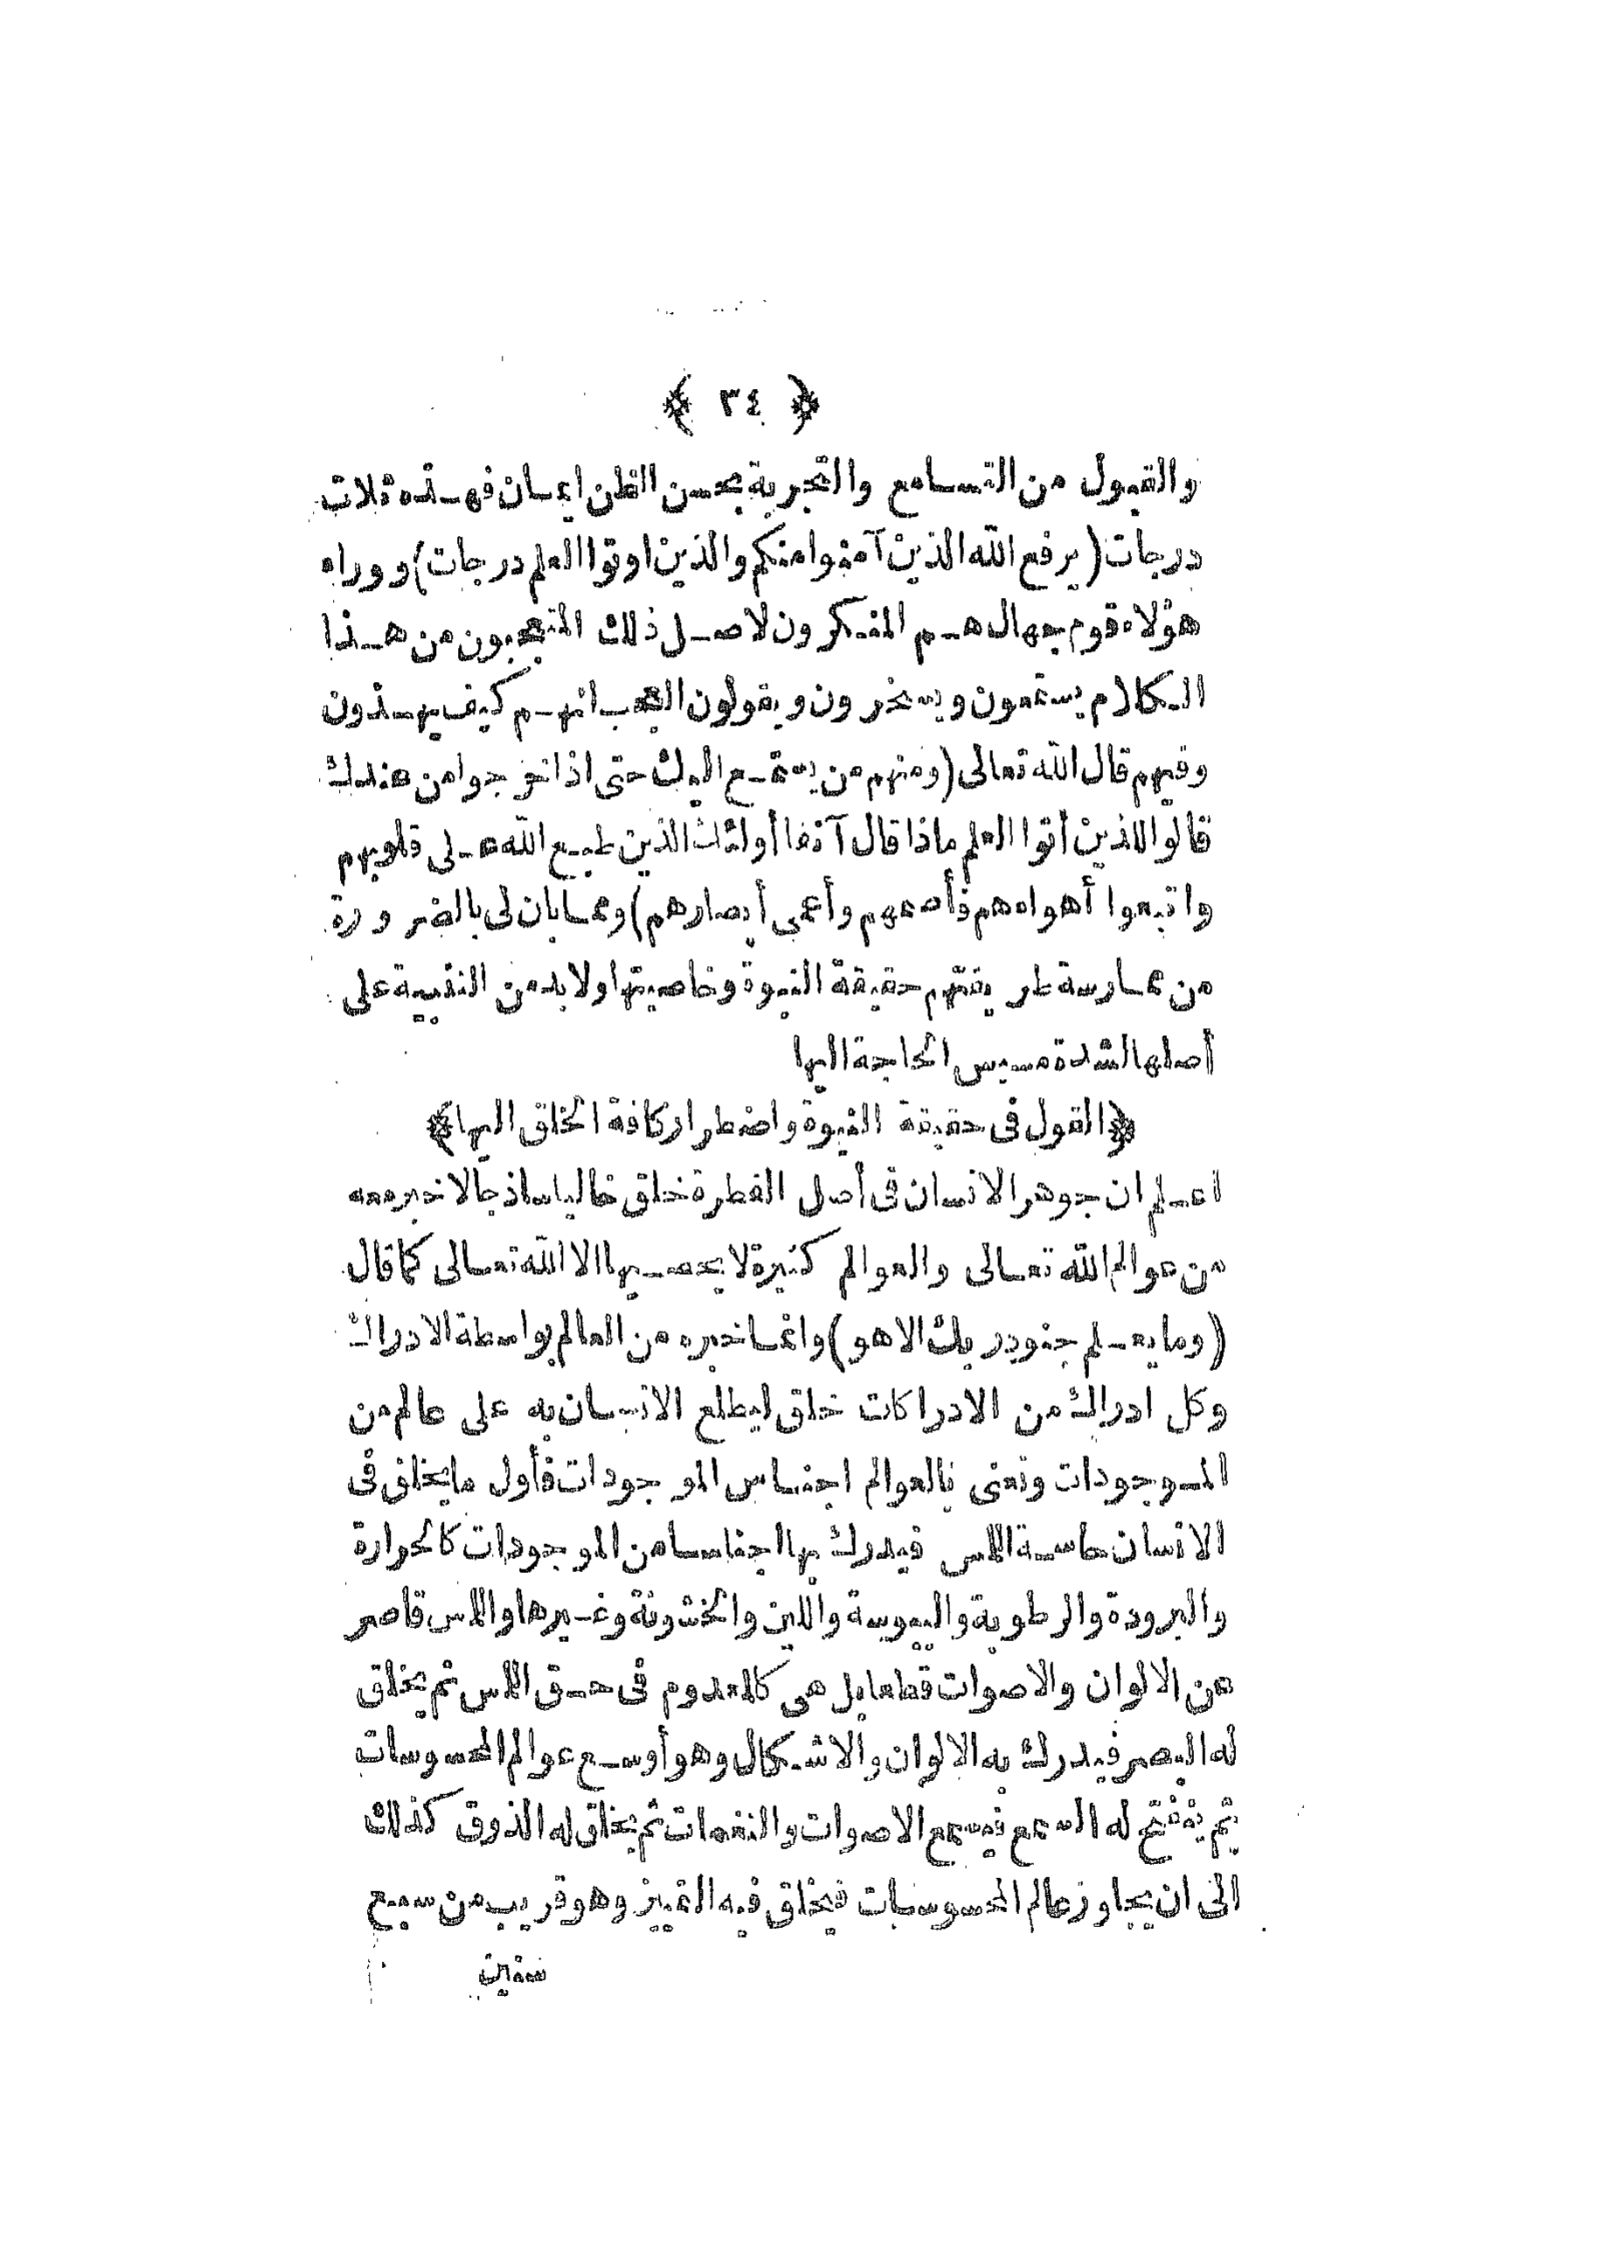 ﴿ ٣٤ ﴾
والقبول من التسامع والتجربة بحسن الظن ايمان فهذه ثلاث
درجات (يرفع الله الذين آمنوا منكم والذين اوتوا العلم درجات) ووراء
هؤلاء قوم جهال هم المنكرون لاصل ذلك المتعجبون من هذا
الكلام يستمعون ويسخرون ويقولون العجب انهم كيف يهذون
وفيهم قال الله تعالى (ومنهم من يستمع اليك حتى اذا خرجوا من عندك
قالوا للذين أتوا العلم ماذا قال آنفا أولئك الذين طبع الله على قلوبهم
واتبعوا أهواءهم فأصمهم وأعمى أبصارهم) ومما بان لى بالضرورة
من ممارسة طريقتهم حقيقة النبوة وخاصيتها ولا بد من التنبيه على
أصلها لشدة مسيس الحاجة اليها
﴿القول فى حقيقة النبوة واضطرار كافة الخلق اليها﴾
اعلم ان جوهر الانسان فى أصل الفطرة خلق خاليا ساذجا لا خبر معه
من عوالم الله تعالى والعوالم كثيرة لا يحصيها الا الله تعالى كما قال
(وما يعلم جنود ربك الا هو) وانما خبره من العالم بواسطة الادراك
وكل ادراك من الادراكات خلق ليطلع الانسان به على عالم من
الموجودات ونعنى بالعوالم اجناس الموجودات فأول ما يخلق فى
الانسان حاسة اللمس فيدرك بها اجناسا من الموجودات كالحرارة
والبرودة والرطوبة واليبوسة واللين والخشونة وغيرها واللمس قاصر
عن الالوان والاصوات قطعا بل هى كالمعدوم فى حق اللمس ثم يخلق
له البصر فيدرك به الالوان والاشكال وهو أوسع عوالم المحسوسات
ثم ينفتح له السمع فيسمع الاصوات والنغمات ثم يخلق له الذوق كذلك
الى ان يجاوز عالم المحسوسات فيخلق فيه التمييز وهو قريب من سبع
سنين